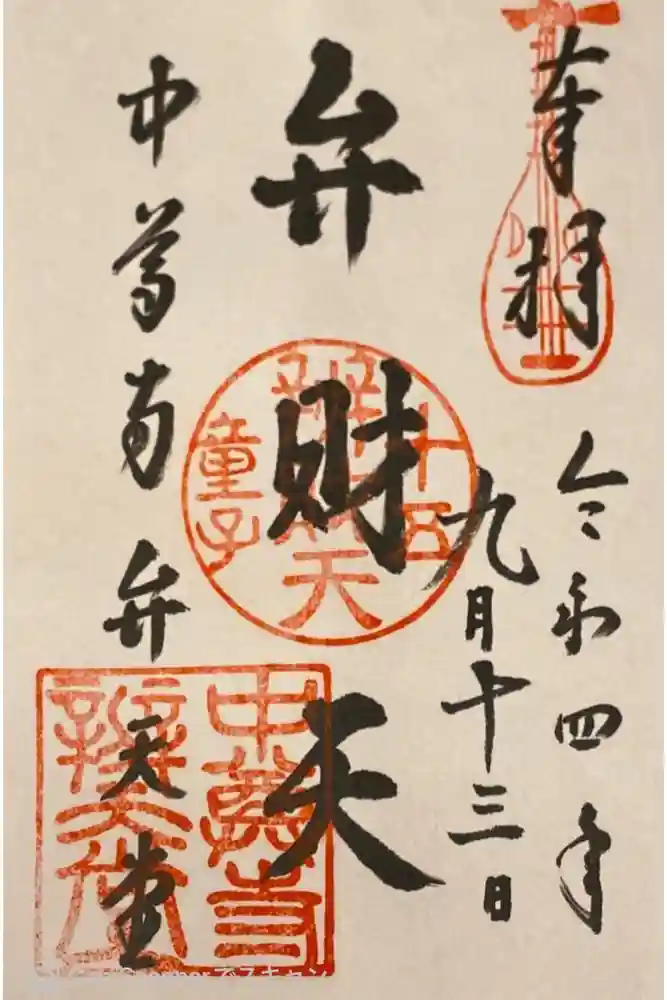 奉拝
令和四年
九月十三日
弁財天
中尊寺弁天堂
十五
辨財天
童子
中尊寺
辨天堂
でスキャン